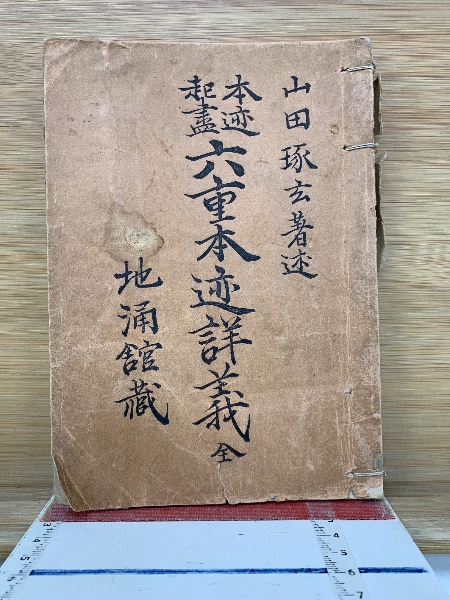 山田琢玄著述
本迹
起盡
六重本迹詳義 全
地涌舘蔵
3
4
5
6
7